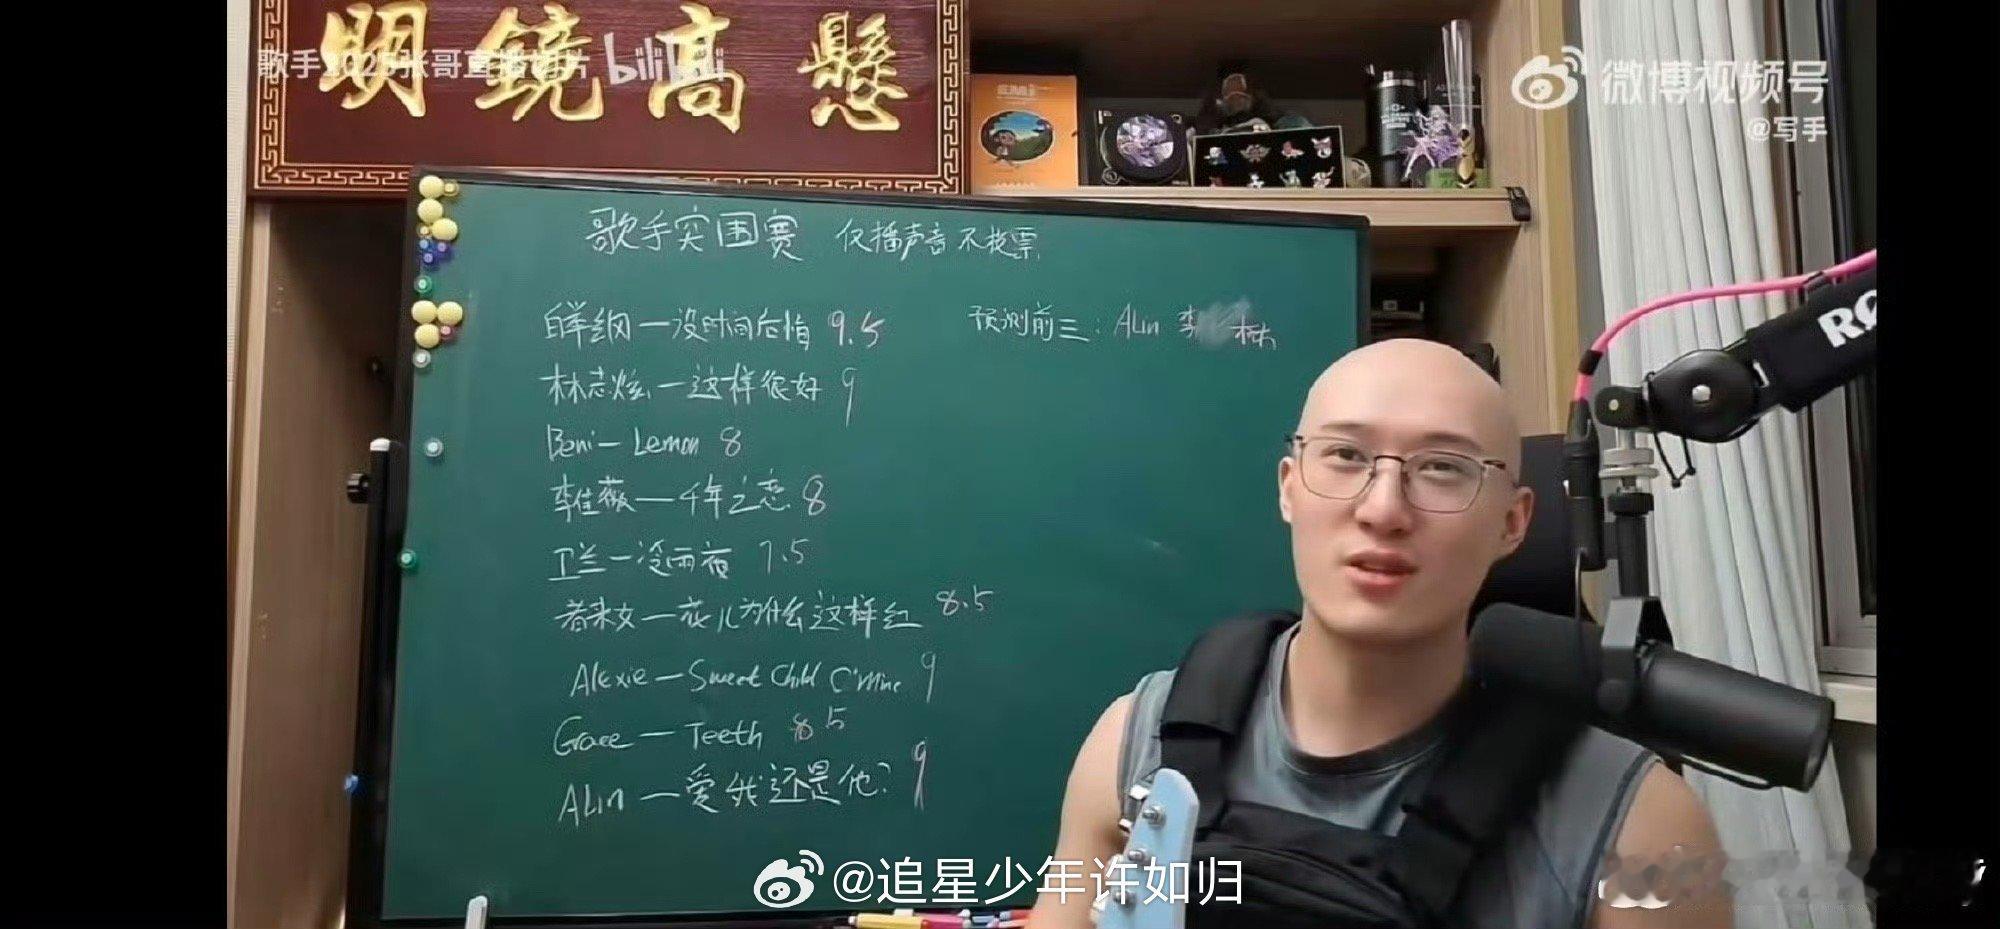 明鏡高懸
歌手2025张哥直播切片 bilibili
微博视频号
@写手
歌手突围赛 仅播声音不投票
白举纲—没时间后悔 9.5
预测前三: ALin 李 林
林志炫—这样很好 9
Beni—Lemon 8
李佳薇—千年之恋 8
卫兰—冷雨夜 7.5
者来女—花儿为什么这样红 8.5
Alexie—Sweet Child O'Mine 9
Grace—Teeth 8.5
ALin—爱我还是他? 9
@追星少年许如归